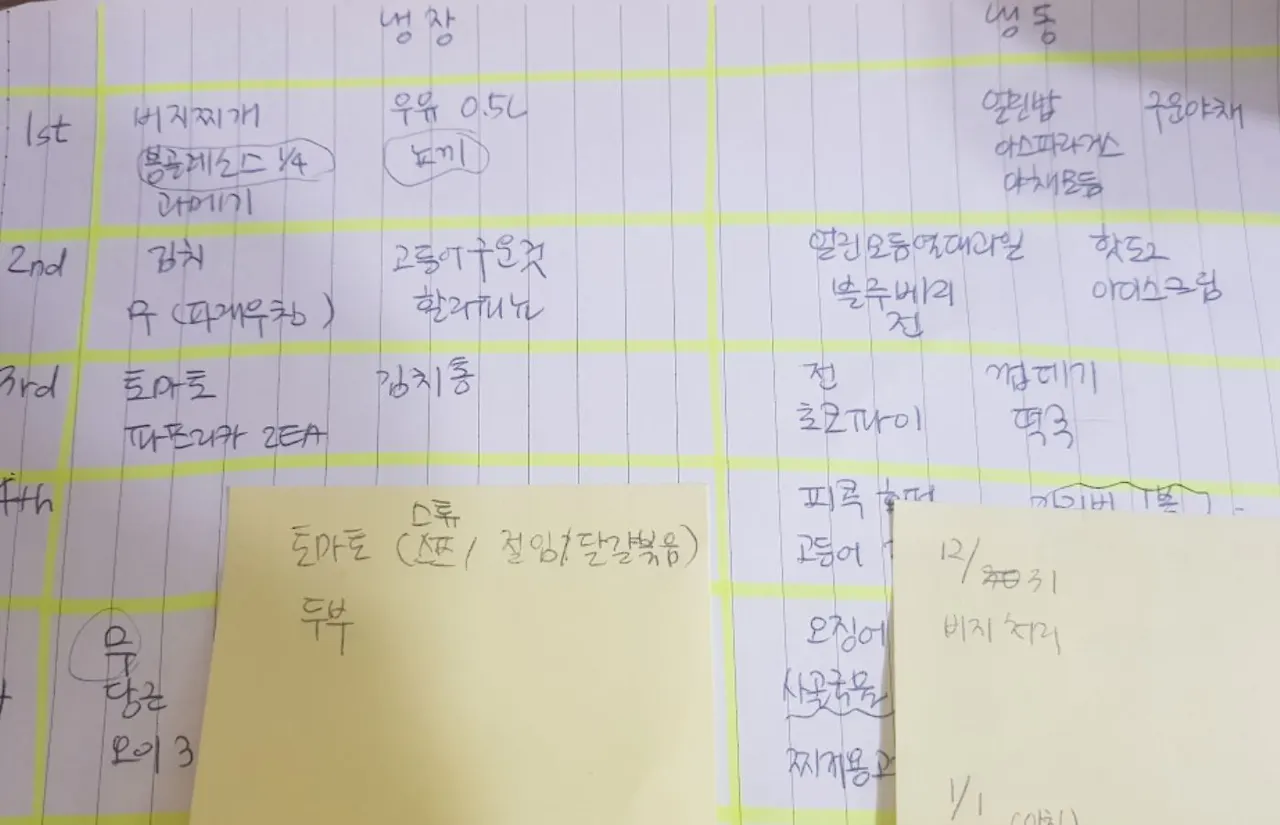 냉장 냉동
1st 버지찌개 우유 0.5L 얼린밥 구운야채
봉골레소스 1/4 아스파라거스
과메기 야채모듬
2nd 김치 고등어구운것 얼린모듬열대과일 핫도그
무 (파래무침) 할라피뇨 블루베리 아이스크림
전
3rd 토마토 김치통 전 껍데기
파프리카 2EA 초코파이 떡국
4th 피콕
고등어
무 오징어
당근 사골국물
오이 3 찌개용
스튜
토마토 ( / 절임/달걀볶음)
두부
12/31
비지 처리
1/1